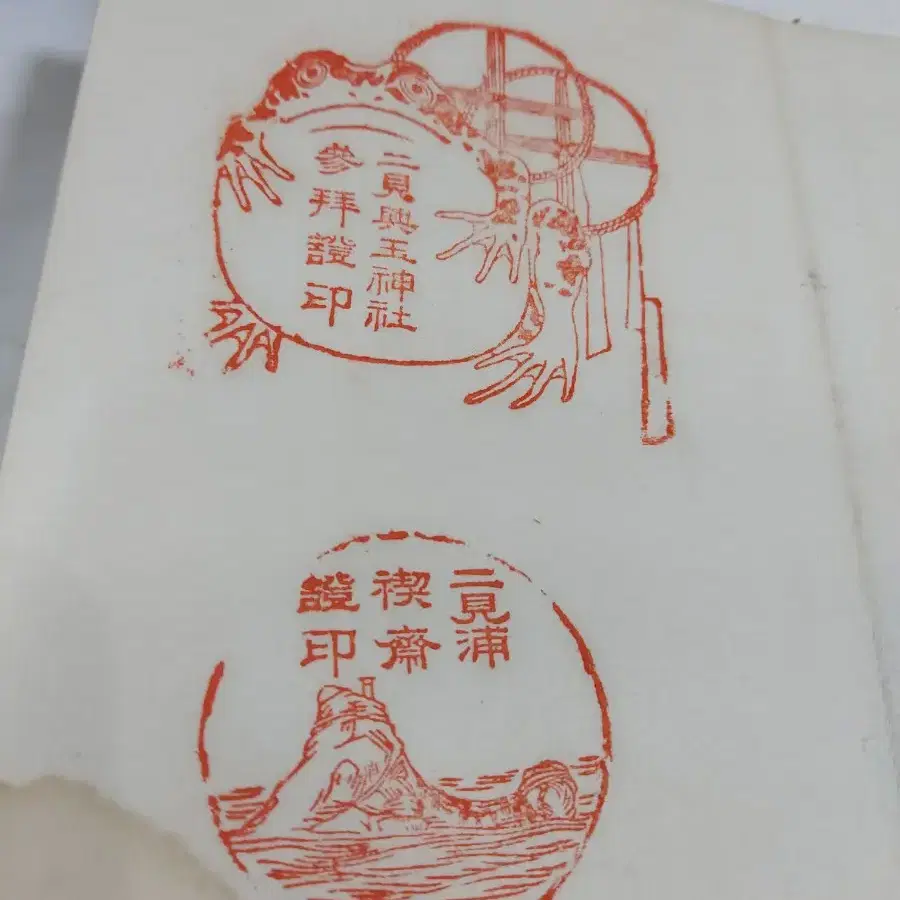 二見興玉神社
參拜證印
二見浦
禊齋
證印